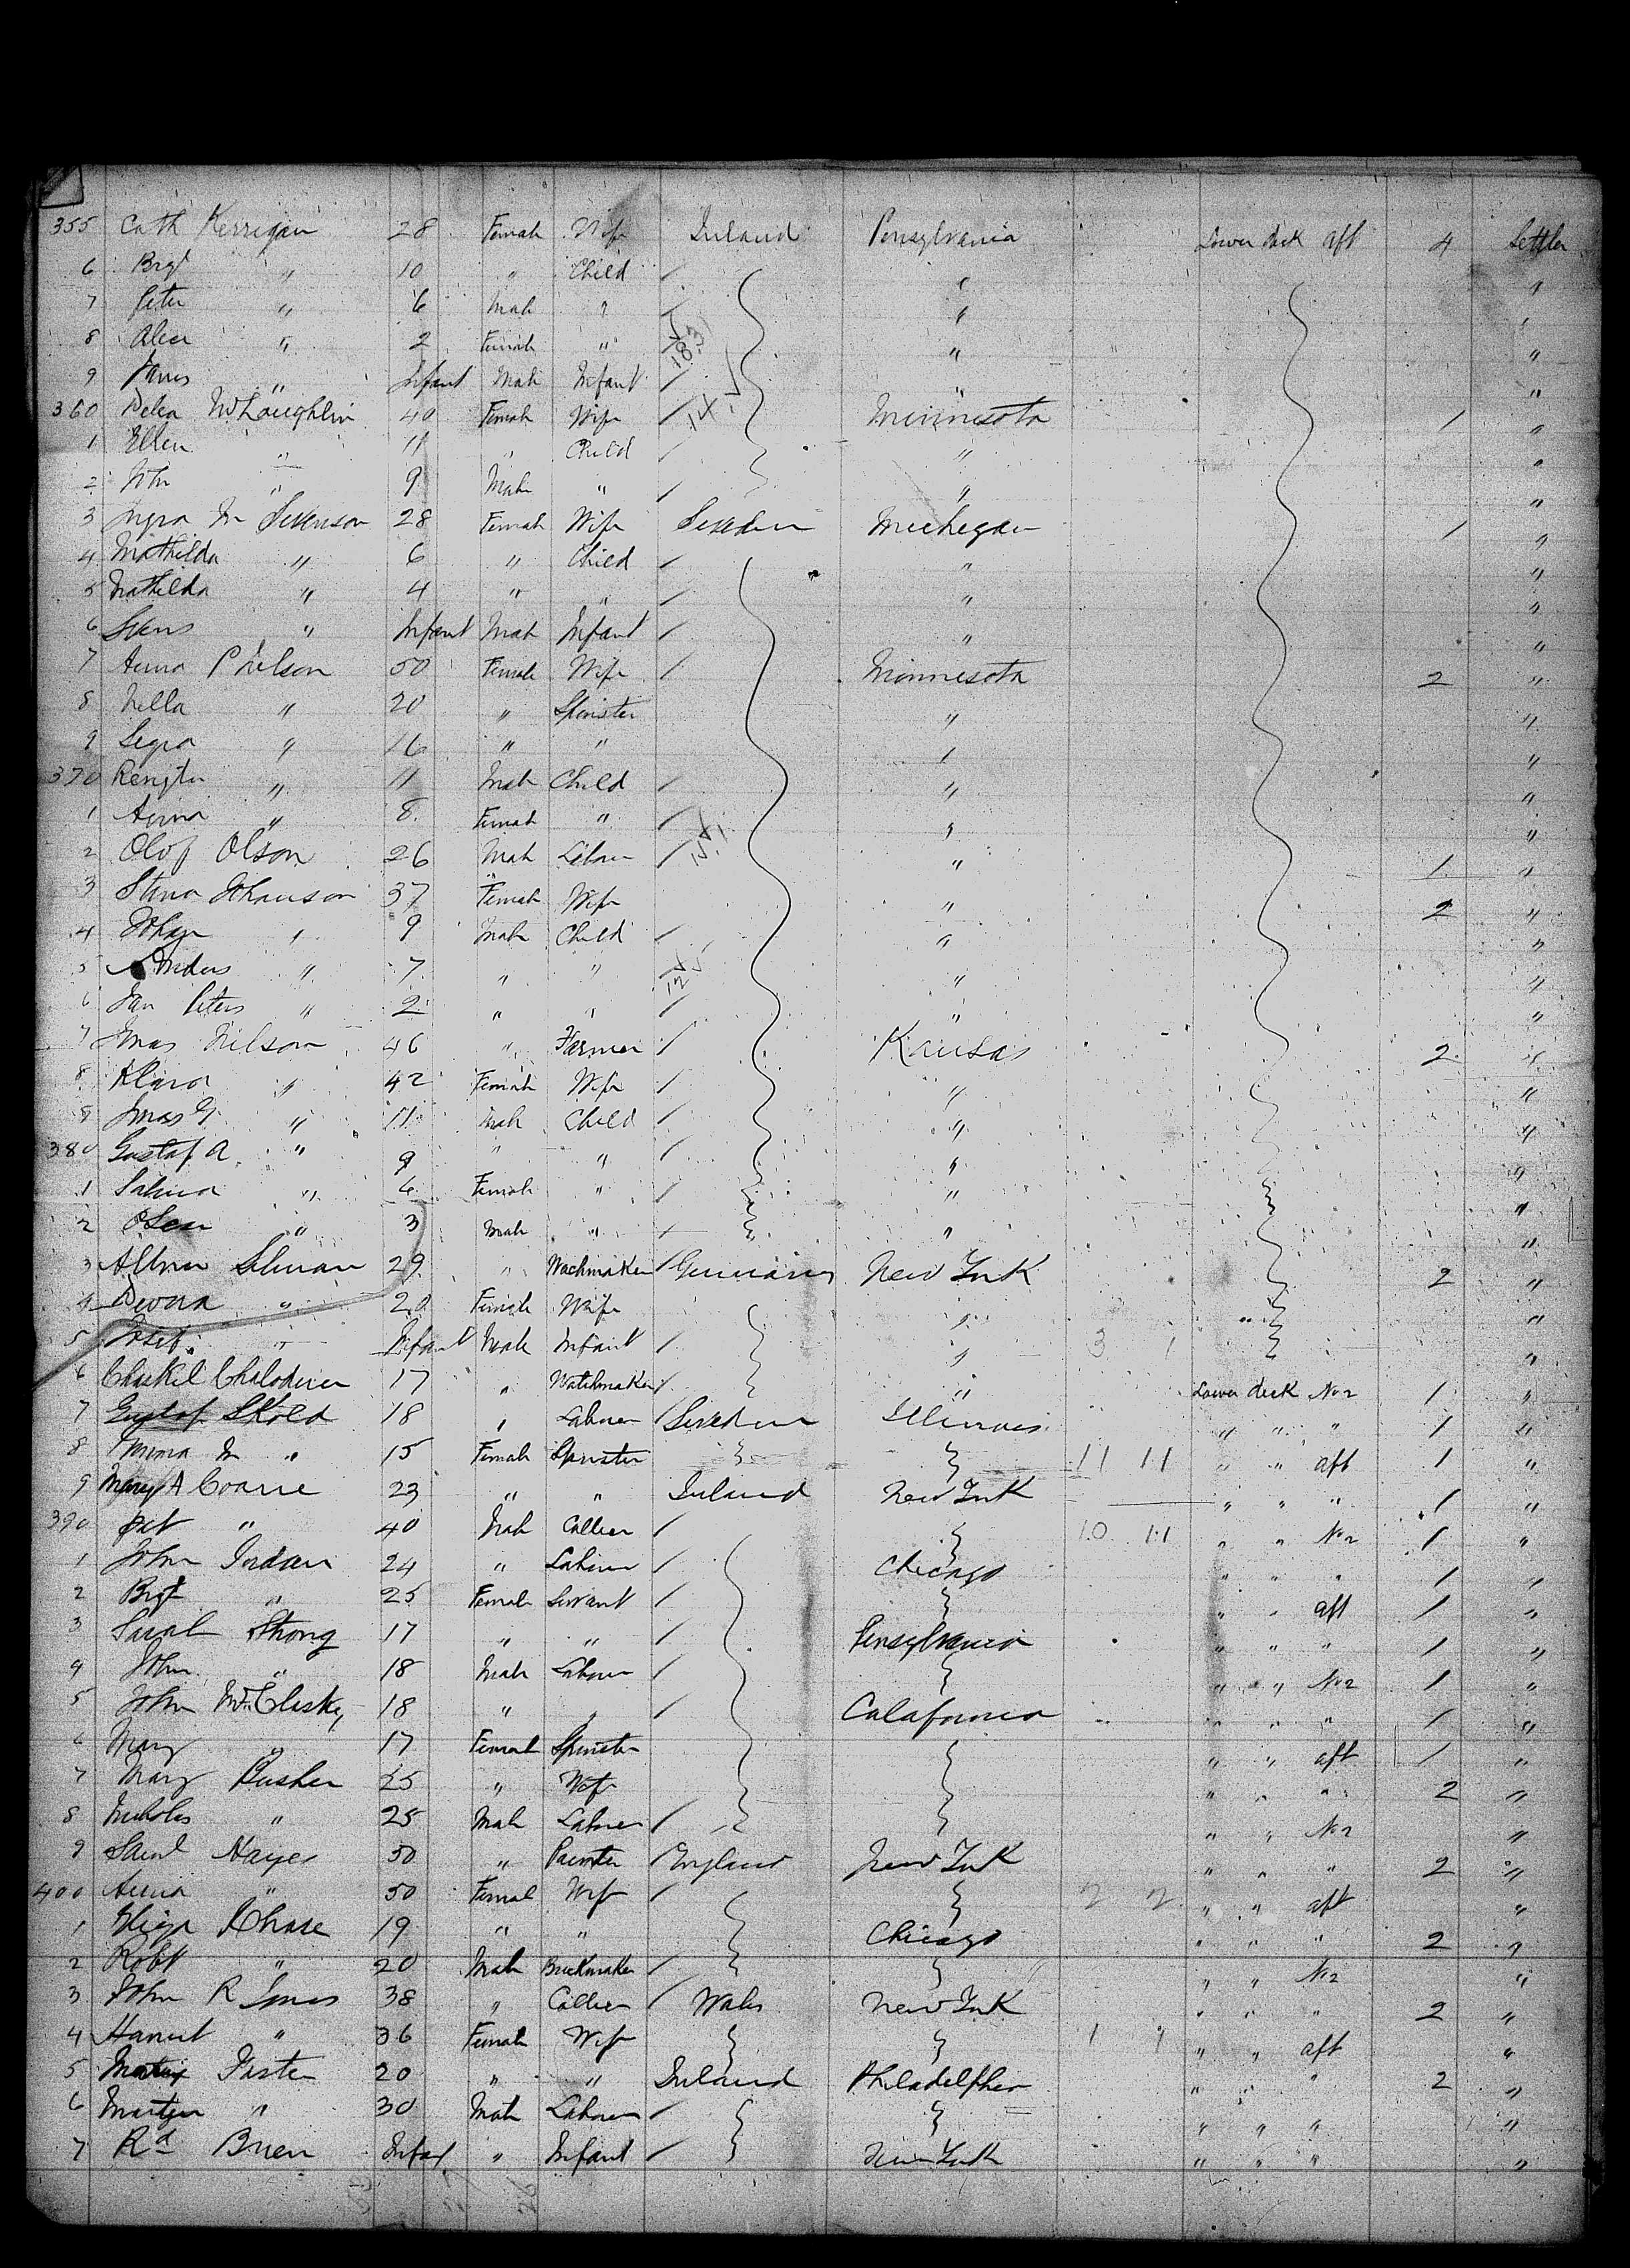 355 Cath Kerrigan 28 Female Wife Ireland Pensylvania Lower deck aft 4 Settler
6 Brgt " 10 " Child " "
7 Peter " 6 Male " " "
8 " 2 Female " " "
9 James " Infant Male Infant " "
360 Delia McLoughlin 40 Female Wife Minnesota 1 "
1 Ellen " 11 " Child " "
2 John " 9 Male " " "
3 Ingra M Svenson 28 Female Wife Sweden Michegan 1 "
4 Mathilda " 6 " Child " "
5 Mathilda " 4 " " " "
6 Svens " Infant Male Infant " "
7 Anna P Nelson 50 Female Wife Minnesota 2 "
8 Nella " 20 " Spinster " "
9 Segra " 16 " " " "
370 " 11 Male Child " "
1 Anna " 8 Female " " "
2 Olof Olson 26 Male Labour " 1 "
3 Stina Johanson 37 Female Wife " 2 "
4 Johan " 9 Male Child " "
5 Anders " 7 " " " "
6 Jan Peters " 2 " " " "
7 Jonas Nilson 46 " Farmer Kansas 2 "
8 Klara " 42 Female Wife " "
9 Jonas G " 11 Male Child " "
380 Gustaf A " 9 " " " "
1 " 6 Female " " "
2 " 3 Male " " "
3 29 " Wachmaker Germany New York 2 "
4 " 20 Female Wife " "
5 Josef " Infant Male Infant " 3 1 "
6 17 " Watchmaker " Lower deck No 2 1 "
7 Gustaf Skold 18 " Labourer Sweden Illinois " " " 1 "
8 M " 15 Female Spinster 11 11 " " aft 1 "
9 Mary A 23 " " Ireland New York " " " 1 "
390 Pat " 40 Male Collier 10 11 " " No 2 1 "
1 John Jordan 24 " Labour Chicago " " " 1 "
2 Brgt " 25 Female Servant " " aft 1 "
3 Sarah Strong 17 " " Pensylvania " " " 1 "
4 John " 18 Male Labour " " No 2 1 "
5 John McClosky 18 " " Calafornia " " " 1 "
6 Mary " 17 Female Spinster " " aft 1 "
7 Mary Busher 25 " Wife " " " 2 "
8 Nicholas " 25 Male Labourer " " No 2 "
9 Saml Hayes 50 " Painter England New York " " " 2 "
400 Anna " 50 Female Wife 2 2 " " aft "
1 Eliza Chase 19 " " Chicago " " " 2 "
2 Robt " 20 Male Brickmaker " " No 2 "
3 John R Jones 38 " Collier Wales New York " " " 2 "
4 Hannt " 36 Female Wife 1 1 " " aft "
5 20 " " Ireland Philadelphia " " " 2 "
6 Martin " 30 Male Labourer " " " "
7 Rd Brien Infant " Infant New York " " " "